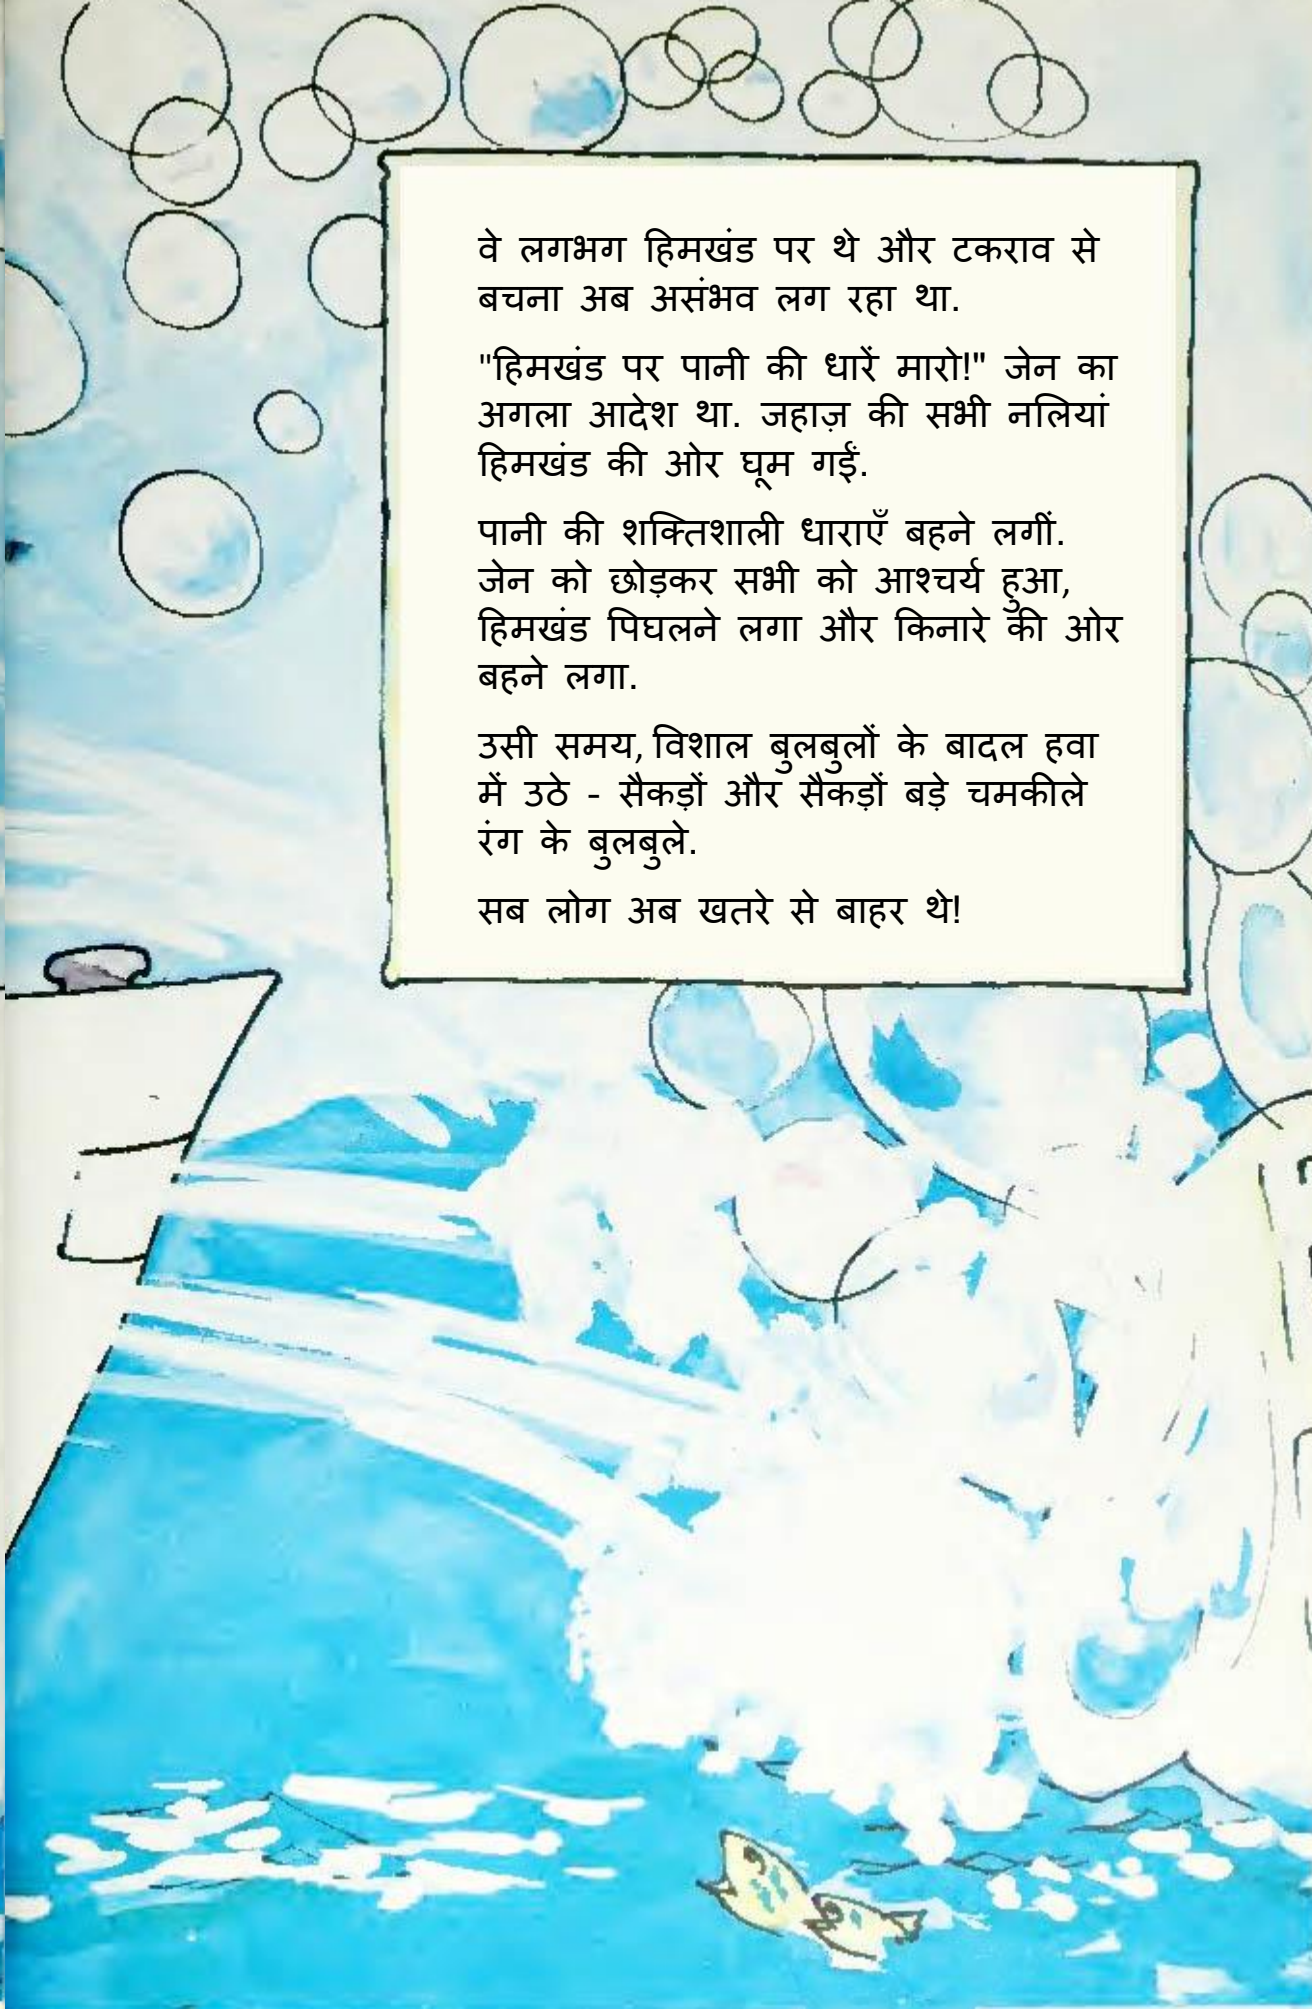 वे लगभग हिमखंड पर थे और टकराव से
बचना अब असंभव लग रहा था.
"हिमखंड पर पानी की धारें मारो!" जेन का
अगला आदेश था. जहाज़ की सभी नलियां
हिमखंड की ओर घूम गईं.
पानी की शक्तिशाली धाराएँ बहने लगीं.
जेन को छोड़कर सभी को आश्चर्य हुआ,
हिमखंड पिघलने लगा और किनारे की ओर
बहने लगा.
उसी समय, विशाल बुलबुलों के बादल हवा
में उठे - सैकड़ों और सैकड़ों बड़े चमकीले
रंग के बुलबुले.
सब लोग अब खतरे से बाहर थे!